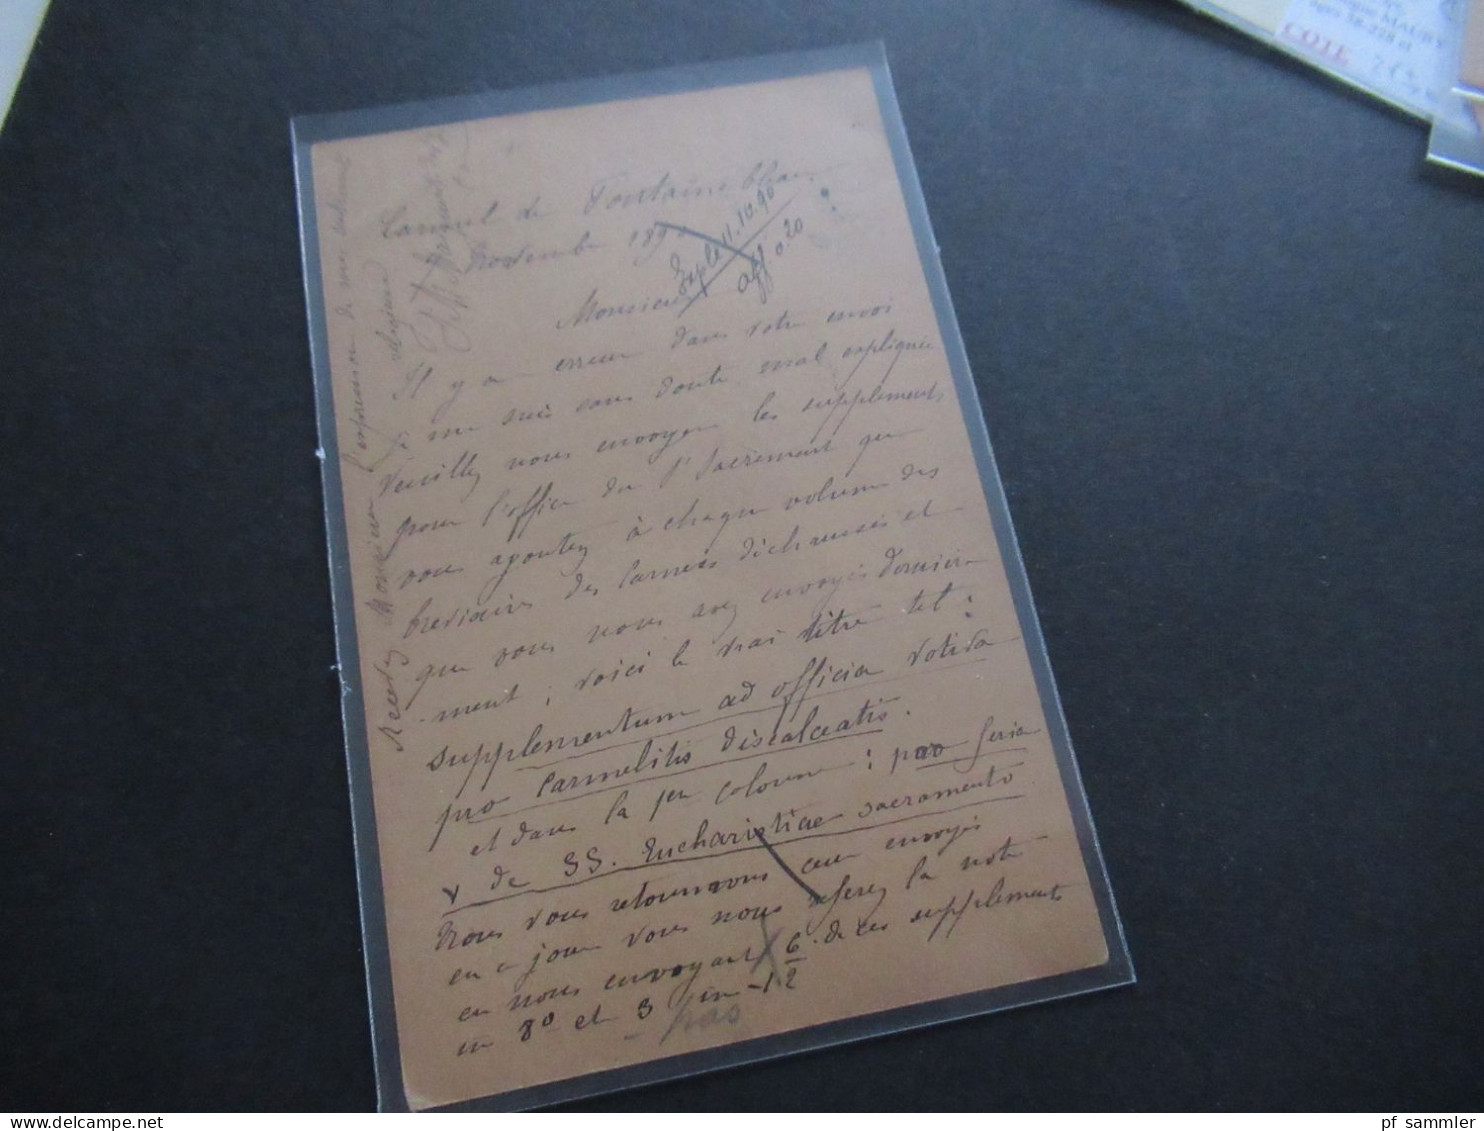 Carmel de Fontainebleau
Novembre 189
Expl. 11.10.90
aff 0.20
Monsieur
Il y a erreur dans votre envoi
je me suis sans doute mal expliquée
Veuillez nous envoyer les suppléments
pour l'office du St Sacrement que
vous ajoutez à chaque volume des
bréviaires des Carmes déchaussés et
que vous nous avez envoyés dernière-
-ment ; voici le vrai titre tel :
supplementum ad officia votiva
pro Carmelitis discalceatis.
et dans la 1ere colonne : pro feria
V de SS. Eucharistiae sacramento
Nous vous retournerons ceux envoyés
en ce jour vous nous referez la note
en nous envoyant 6 de ces suppléments
in 8° et 3 in-12
2
pas
Recevez Monsieur l'expression de mes sentiments
religieux
COTE
pf sammler